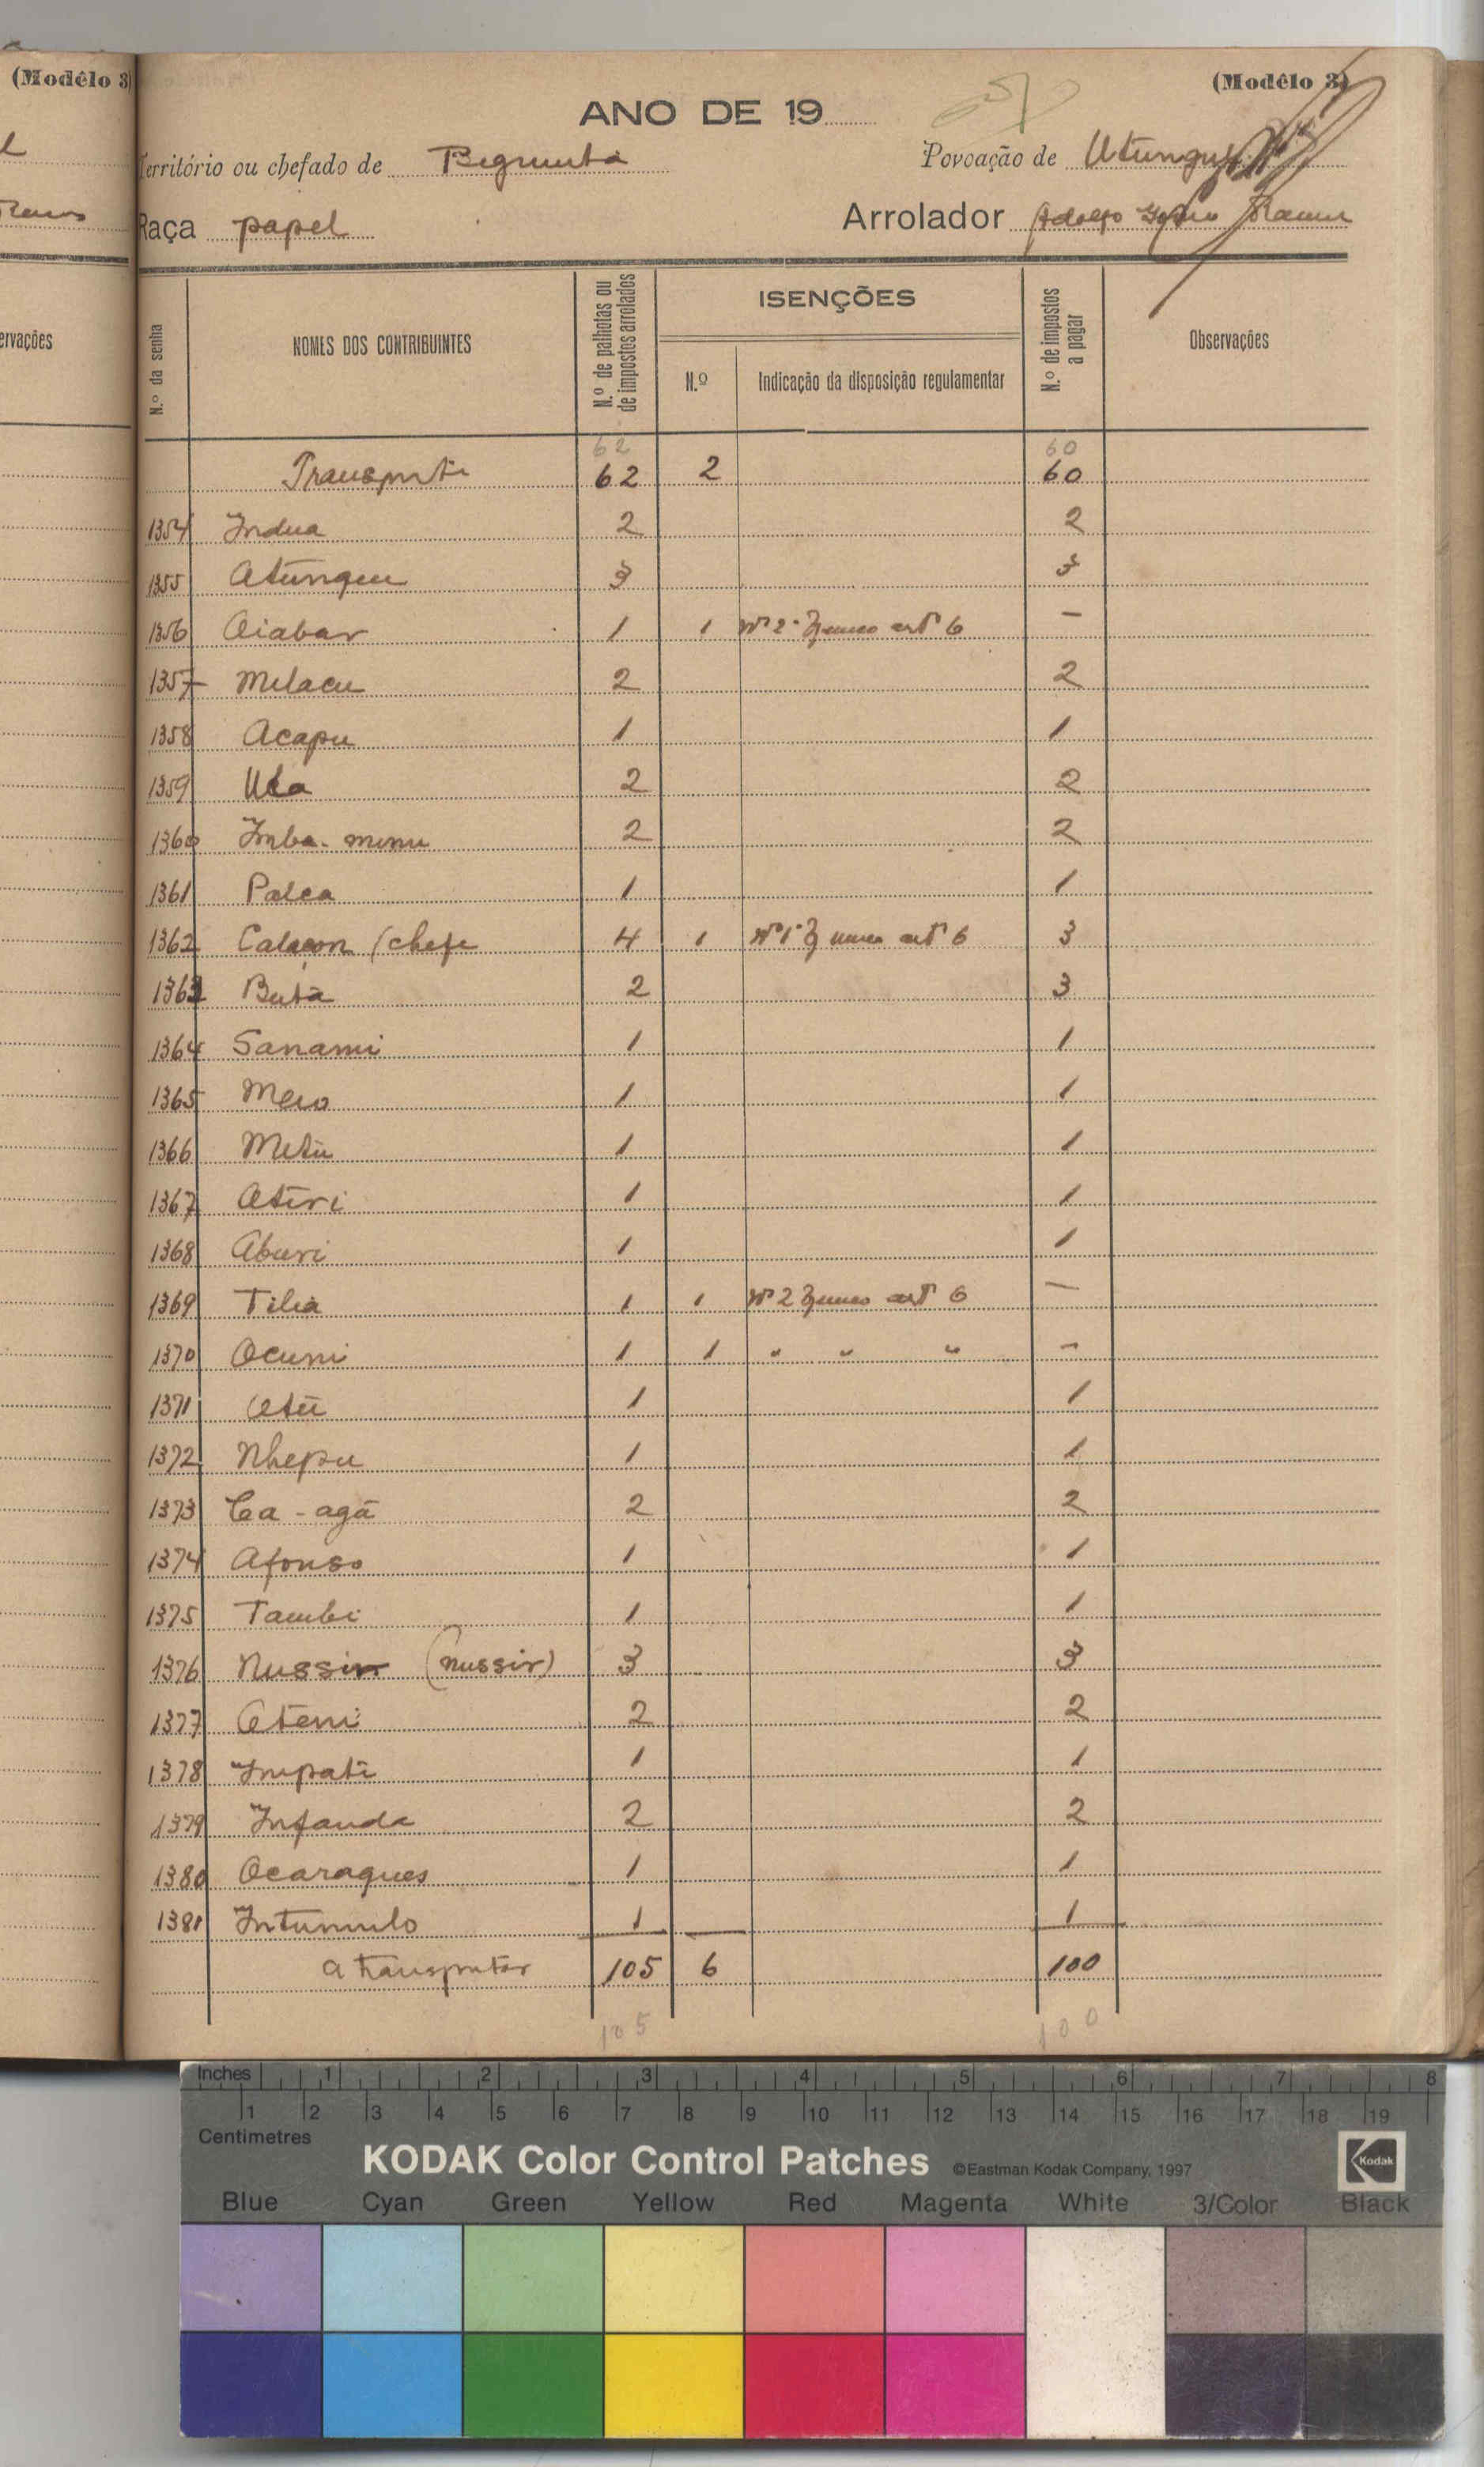 (Modêlo 3)
(Modêlo 3)
ANO DE 19
Território ou chefado de Biguntá
Povoação de
Raça papel
Arrolador Adolfo Ramos
ervações
N.º da senha
NOMES DOS CONTRIBUINTES
N.º de palhotas ou de impostos arrolados
ISENÇÕES
N.º
Indicação da disposição regulamentar
N.º de impostos a pagar
Observações
62 60
Transporte 62 2 60
1354 Indua 2 2
1355 Atungeu 3 3
1356 Aiabar 1 1 Nº 2º § unico artº 6 —
1357 Milacu 2 2
1358 Acapu 1 1
1359 Ula 2 2
1360 Imba-minu 2 2
1361 Palca 1 1
1362 Calaçon (chefe 4 1 Nº 1º § unico artº 6 3
1363 Butà 2 3
1364 Sanami 1 1
1365 Meio 1 1
1366 Metù 1 1
1367 Atiri 1 1
1368 Aburi 1 1
1369 Tiliá 1 1 Nº 2 § unico artº 6 —
1370 Ocuni 1 1 " " " —
1371 Otù 1 1
1372 Nhepu 1 1
1373 Ca-agã 2 2
1374 Afonso 1 1
1375 Tambi 1 1
1376 Nussir (nussir) 3 3
1377 Oteni 2 2
1378 Impati 1 1
1379 Infanda 2 2
1380 Ocaragues 1 1
1381 Intumulo 1 1
A transportar 105 6 100
105 100
Inches 1 2 3 4 5 6 7 8
1 2 3 4 5 6 7 8 9 10 11 12 13 14 15 16 17 18 19
Centimetres
KODAK Color Control Patches ©Eastman Kodak Company, 1997 Kodak
Blue Cyan Green Yellow Red Magenta White 3/Color Black